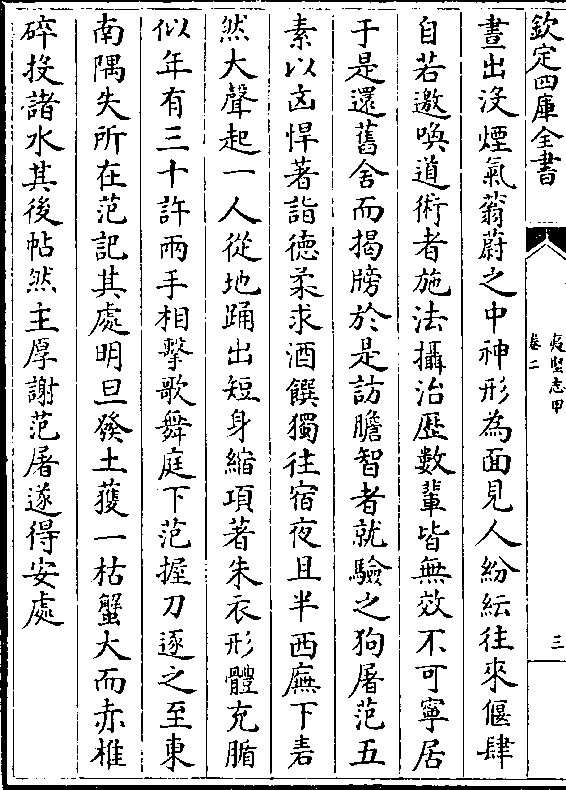 欽定四庫全書
夷堅志甲
卷二
三
晝出沒煙氣蓊蔚之中神形為面見人紛紜往來偃肆
自若邀喚道術者施法攝治歷數輩皆無效不可寧居
于是還舊舍而揭牓於是訪膽智者就驗之狗屠范五
素以凶悍著詣德柔求酒饌獨往宿夜且半西廡下砉
然大聲起一人從地踊出短身縮項著朱衣形體充腯
似年有三十許兩手相擊歌舞庭下范握刀逐之至東
南隅失所在范記其處明旦發土獲一枯蟹大而赤椎
碎投諸水其後帖然主厚謝范屠遂得安處